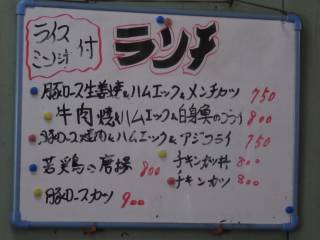 ライス
ミソ汁 付
ランチ
豚ロース生姜焼&ハムエッグ&メンチカツ 750
牛肉焼&ハムエッグ&白身魚のフライ 800
豚ロース焼肉&ハムエッグ&アジフライ 750
若菜鶏の唐揚 800
チキンカツ 800
チキンカツ 800
豚ロースカツ 900